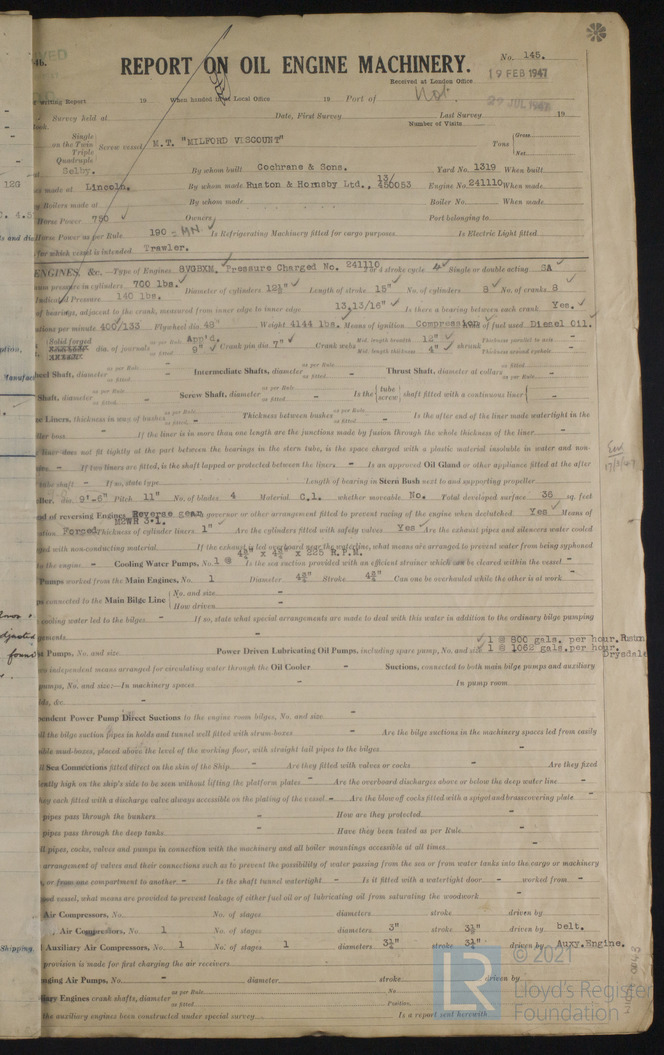 4b.
REPORT ON OIL ENGINE MACHINERY.
No. 145.
Received at London Office 19 FEB 1947
writing Report 19 When handed in at Local Office 19 Port of Hull
29 JUL 1947
Survey held at Date, First Survey Last Survey 19
Number of Visits
Single
on the Twin
Triple
Quadruple
Screw vessel M.T. "MILFORD VISCOUNT"
Tons Gross
Net
Selby. By whom built Cochrane & Sons. Yard No. 1319 When built
made at Lincoln. By whom made Ruston & Hornsby Ltd., Engine No. 241110 When made
Boilers made at By whom made Boiler No. When made
Horse Power 750 Owners Port belonging to
Horse Power as per Rule 190 = MN. Is Refrigerating Machinery fitted for cargo purposes Is Electric Light fitted
for which vessel is intended Trawler.
ENGINES, &c.—Type of Engines 8VGBXM, Pressure Charged No. 241110 or 4 stroke cycle 4 Single or double acting SA
pressure in cylinders 700 lbs. Diameter of cylinders 12½" Length of stroke 15" No. of cylinders 8 No. of cranks 8
Indicated Pressure 140 lbs.
of bearings, adjacent to the crank, measured from inner edge to inner edge 13,13/16" Is there a bearing between each crank Yes.
per minute 400/133 Flywheel dia. 48" Weight 4144 lbs. Means of ignition Compression of fuel used Diesel Oil.
Solid forged
dia. of journals as per Rule App'd. as fitted 9" Crank pin dia. 7" Crank webs Mid. length breadth 12" Mid. length thickness 4" shrunk Thickness parallel to axis
Thickness around eyehole
Wheel Shaft, diameter as per Rule - as fitted Intermediate Shafts, diameter as per Rule as fitted - Thrust Shaft, diameter at collars as fitted as per Rule -
Shaft, diameter as per Rule as fitted - Screw Shaft, diameter as per Rule as fitted - Is the { tube screw } shaft fitted with a continuous liner { -
Liners, thickness in way of bushes as per Rule as fitted - Thickness between bushes as per Rule as fitted - Is the after end of the liner made watertight in the
boss - If the liner is in more than one length are the junctions made by fusion through the whole thickness of the liner -
liner does not fit tightly at the part between the bearings in the stern tube, is the space charged with a plastic material insoluble in water and non-
- If two liners are fitted, is the shaft lapped or protected between the liners - Is an approved Oil Gland or other appliance fitted at the after
tube shaft - If so, state type Length of bearing in Stern Bush next to and supporting propeller
dia. 9'-6" Pitch 11" No. of blades 4 Material C.I. whether moveable No. Total developed surface 36 sq. feet
of reversing Engines Reverse gear MEWR 3.1. governor or other arrangement fitted to prevent racing of the engine when declutched Yes Means of
Forced, thickness of cylinder liners 1" Are the cylinders fitted with safety valves Yes Are the exhaust pipes and silencers water cooled
with non-conducting material If the exhaust is led overboard near the waterline, what means are arranged to prevent water from being syphoned
to the engine - Cooling Water Pumps, No. 1 @ 4¾" x 4¾" x 225 R.P.M. Is the sea suction provided with an efficient strainer which can be cleared within the vessel -
Pumps worked from the Main Engines, No. 1 Diameter 4¾" Stroke 4¾" Can one be overhauled while the other is at work
connected to the Main Bilge Line { No. and size
How driven
cooling water led to the bilges - If so, state what special arrangements are made to deal with this water in addition to the ordinary bilge pumping
Pumps, No. and size Power Driven Lubricating Oil Pumps, including spare pump, No. and size 1 @ 800 gals. per hour. Ruston
1 @ 1062 gals. per hour. Drysdale
independent means arranged for circulating water through the Oil Cooler - Suctions, connected to both main bilge pumps and auxiliary
pumps, No. and size:—In machinery spaces In pump room
&c. -
Independent Power Pump Direct Suctions to the engine room bilges, No. and size -
the bilge suction pipes in holds and tunnel well fitted with strum-boxes - Are the bilge suctions in the machinery spaces led from easily
mud-boxes, placed above the level of the working floor, with straight tail pipes to the bilges -
Sea Connections fitted direct on the skin of the Ship - Are they fitted with valves or cocks - Are they fixed
high on the ship's side to be seen without lifting the platform plates - Are the overboard discharges above or below the deep water line -
each fitted with a discharge valve always accessible on the plating of the vessel - Are the blow off cocks fitted with a spigot and brass covering plate -
pipes pass through the bunkers - How are they protected -
pipes pass through the deep tanks - Have they been tested as per Rule -
pipes, cocks, valves and pumps in connection with the machinery and all boiler mountings accessible at all times -
arrangement of valves and their connections such as to prevent the possibility of water passing from the sea or from water tanks into the cargo or machinery
or from one compartment to another - Is the shaft tunnel watertight - Is it fitted with a watertight door - worked from -
vessel, what means are provided to prevent leakage of either fuel oil or of lubricating oil from saturating the woodwork -
Air Compressors, No. No. of stages diameters stroke driven by
Air Compressors, No. 1 No. of stages diameters 3" stroke 3½" driven by belt.
Auxiliary Air Compressors, No. 1 No. of stages 1 diameters 3¼" stroke 3¼" driven by Auxy.Engine.
provision is made for first charging the air receivers
Air Pumps, No. - diameter stroke driven by
Engines crank shafts, diameter as per Rule as fitted No. Position
the auxiliary engines been constructed under special survey Is a report sent herewith
© 2021
Lloyd's Register
Foundation
LR